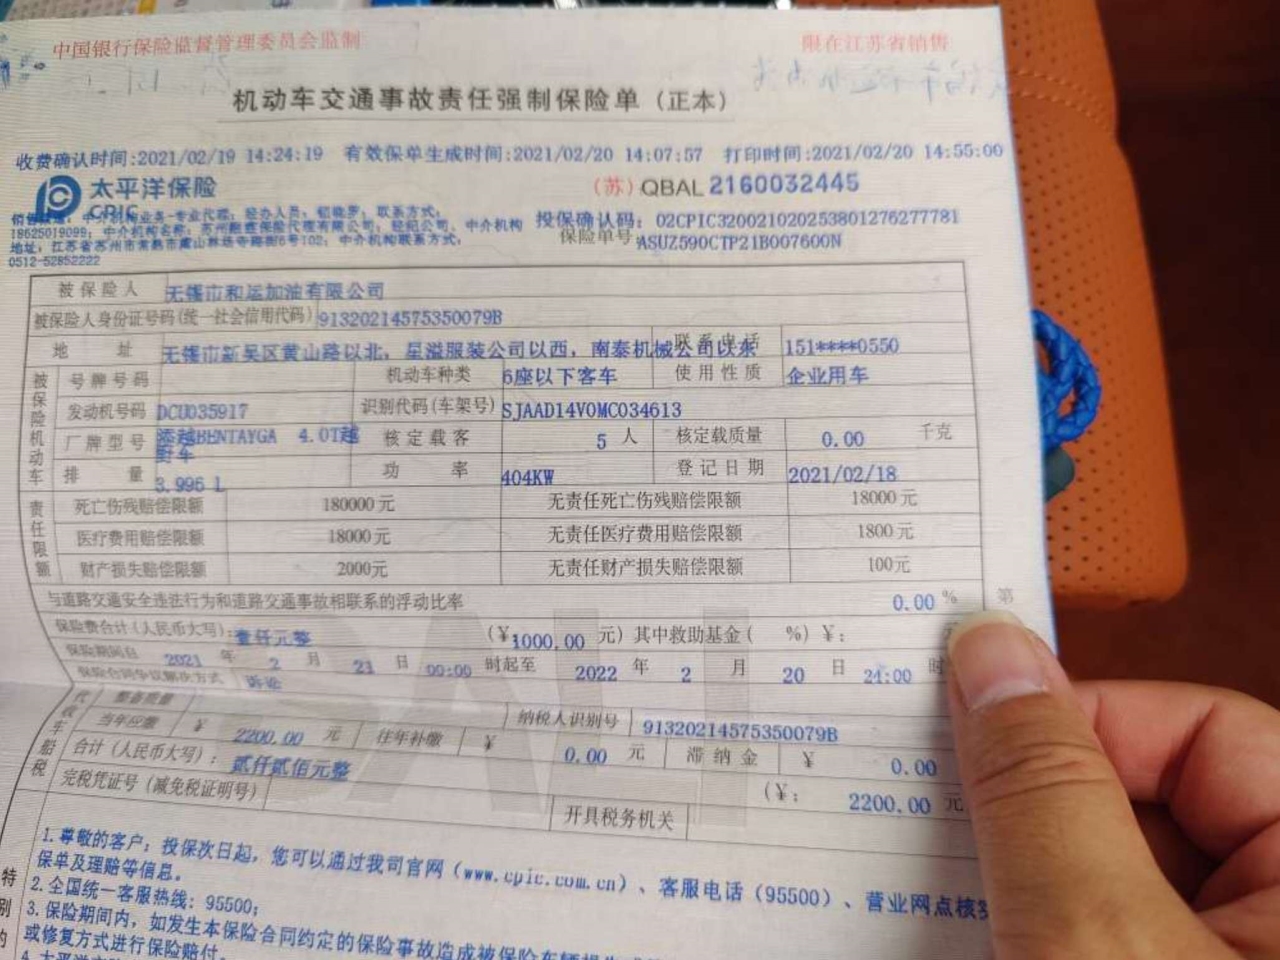 中国银行保险监督管理委员会监制
限在江苏省销售
机动车交通事故责任强制保险单（正本）
收费确认时间:2021/02/19 14:24:19 有效保单生成时间:2021/02/20 14:07:57 打印时间:2021/02/20 14:55:00
太平洋保险
CPIC
(苏) QBAL 2160032445
中介机构业务-专业代理；经办人员：联系方式：
18625019099；中介机构名称：苏州 保险代理有限公司；经纪公司、中介机构
地址：江苏省苏州市常熟市虞山林场寺路街6号102；中介机构联系方式：
0512-52852222
投保确认码：02CPIC320021020253801276277781
保险单号：ASUZ590CTP21B007600N
被保险人 无锡市和运加油有限公司
被保险人身份证号码(统一社会信用代码) 91320214575350079B
地 址 无锡市新吴区黄山路以北，星溢服装公司以西，南泰机械公司以东 联系电话 151****0550
被保险机动车
号牌号码 机动车种类 6座以下客车 使用性质 企业用车
发动机号码 DCU035917 识别代码(车架号) SJAAD14V0MC034613
厂牌型号 添越BENTAYGA 4.0T越野车 核定载客 5 人 核定载质量 0.00 千克
排 量 3.996 L 功 率 404KW 登记日期 2021/02/18
责任限额
死亡伤残赔偿限额 180000元 无责任死亡伤残赔偿限额 18000元
医疗费用赔偿限额 18000元 无责任医疗费用赔偿限额 1800元
财产损失赔偿限额 2000元 无责任财产损失赔偿限额 100元
与道路交通安全违法行为和道路交通事故相联系的浮动比率 0.00 %
第
保险费合计(人民币大写)：壹仟元整 (￥1000.00 元) 其中救助基金( %) ￥： 元
保险期间自 2021 年 2 月 21 日 00:00 时起至 2022 年 2 月 20 日 24:00 时
保险合同争议解决方式 诉讼
代收车船税
整备质量 纳税人识别号 91320214575350079B
当年应缴 ￥ 2200.00 元 往年补缴 ￥ 0.00 元 滞纳金 ￥ 0.00
合计(人民币大写)：贰仟贰佰元整 (￥： 2200.00 元
完税凭证号(减免税证明号) 开具税务机关
特别约
1.尊敬的客户：投保次日起，您可以通过我司官网（www.cpic.com.cn）、客服电话（95500）、营业网点核实
保单及理赔等信息。
2.全国统一客服热线：95500；
3.保险期间内，如发生本保险合同约定的保险事故造成被保险车辆损失
或修复方式进行保险赔付。